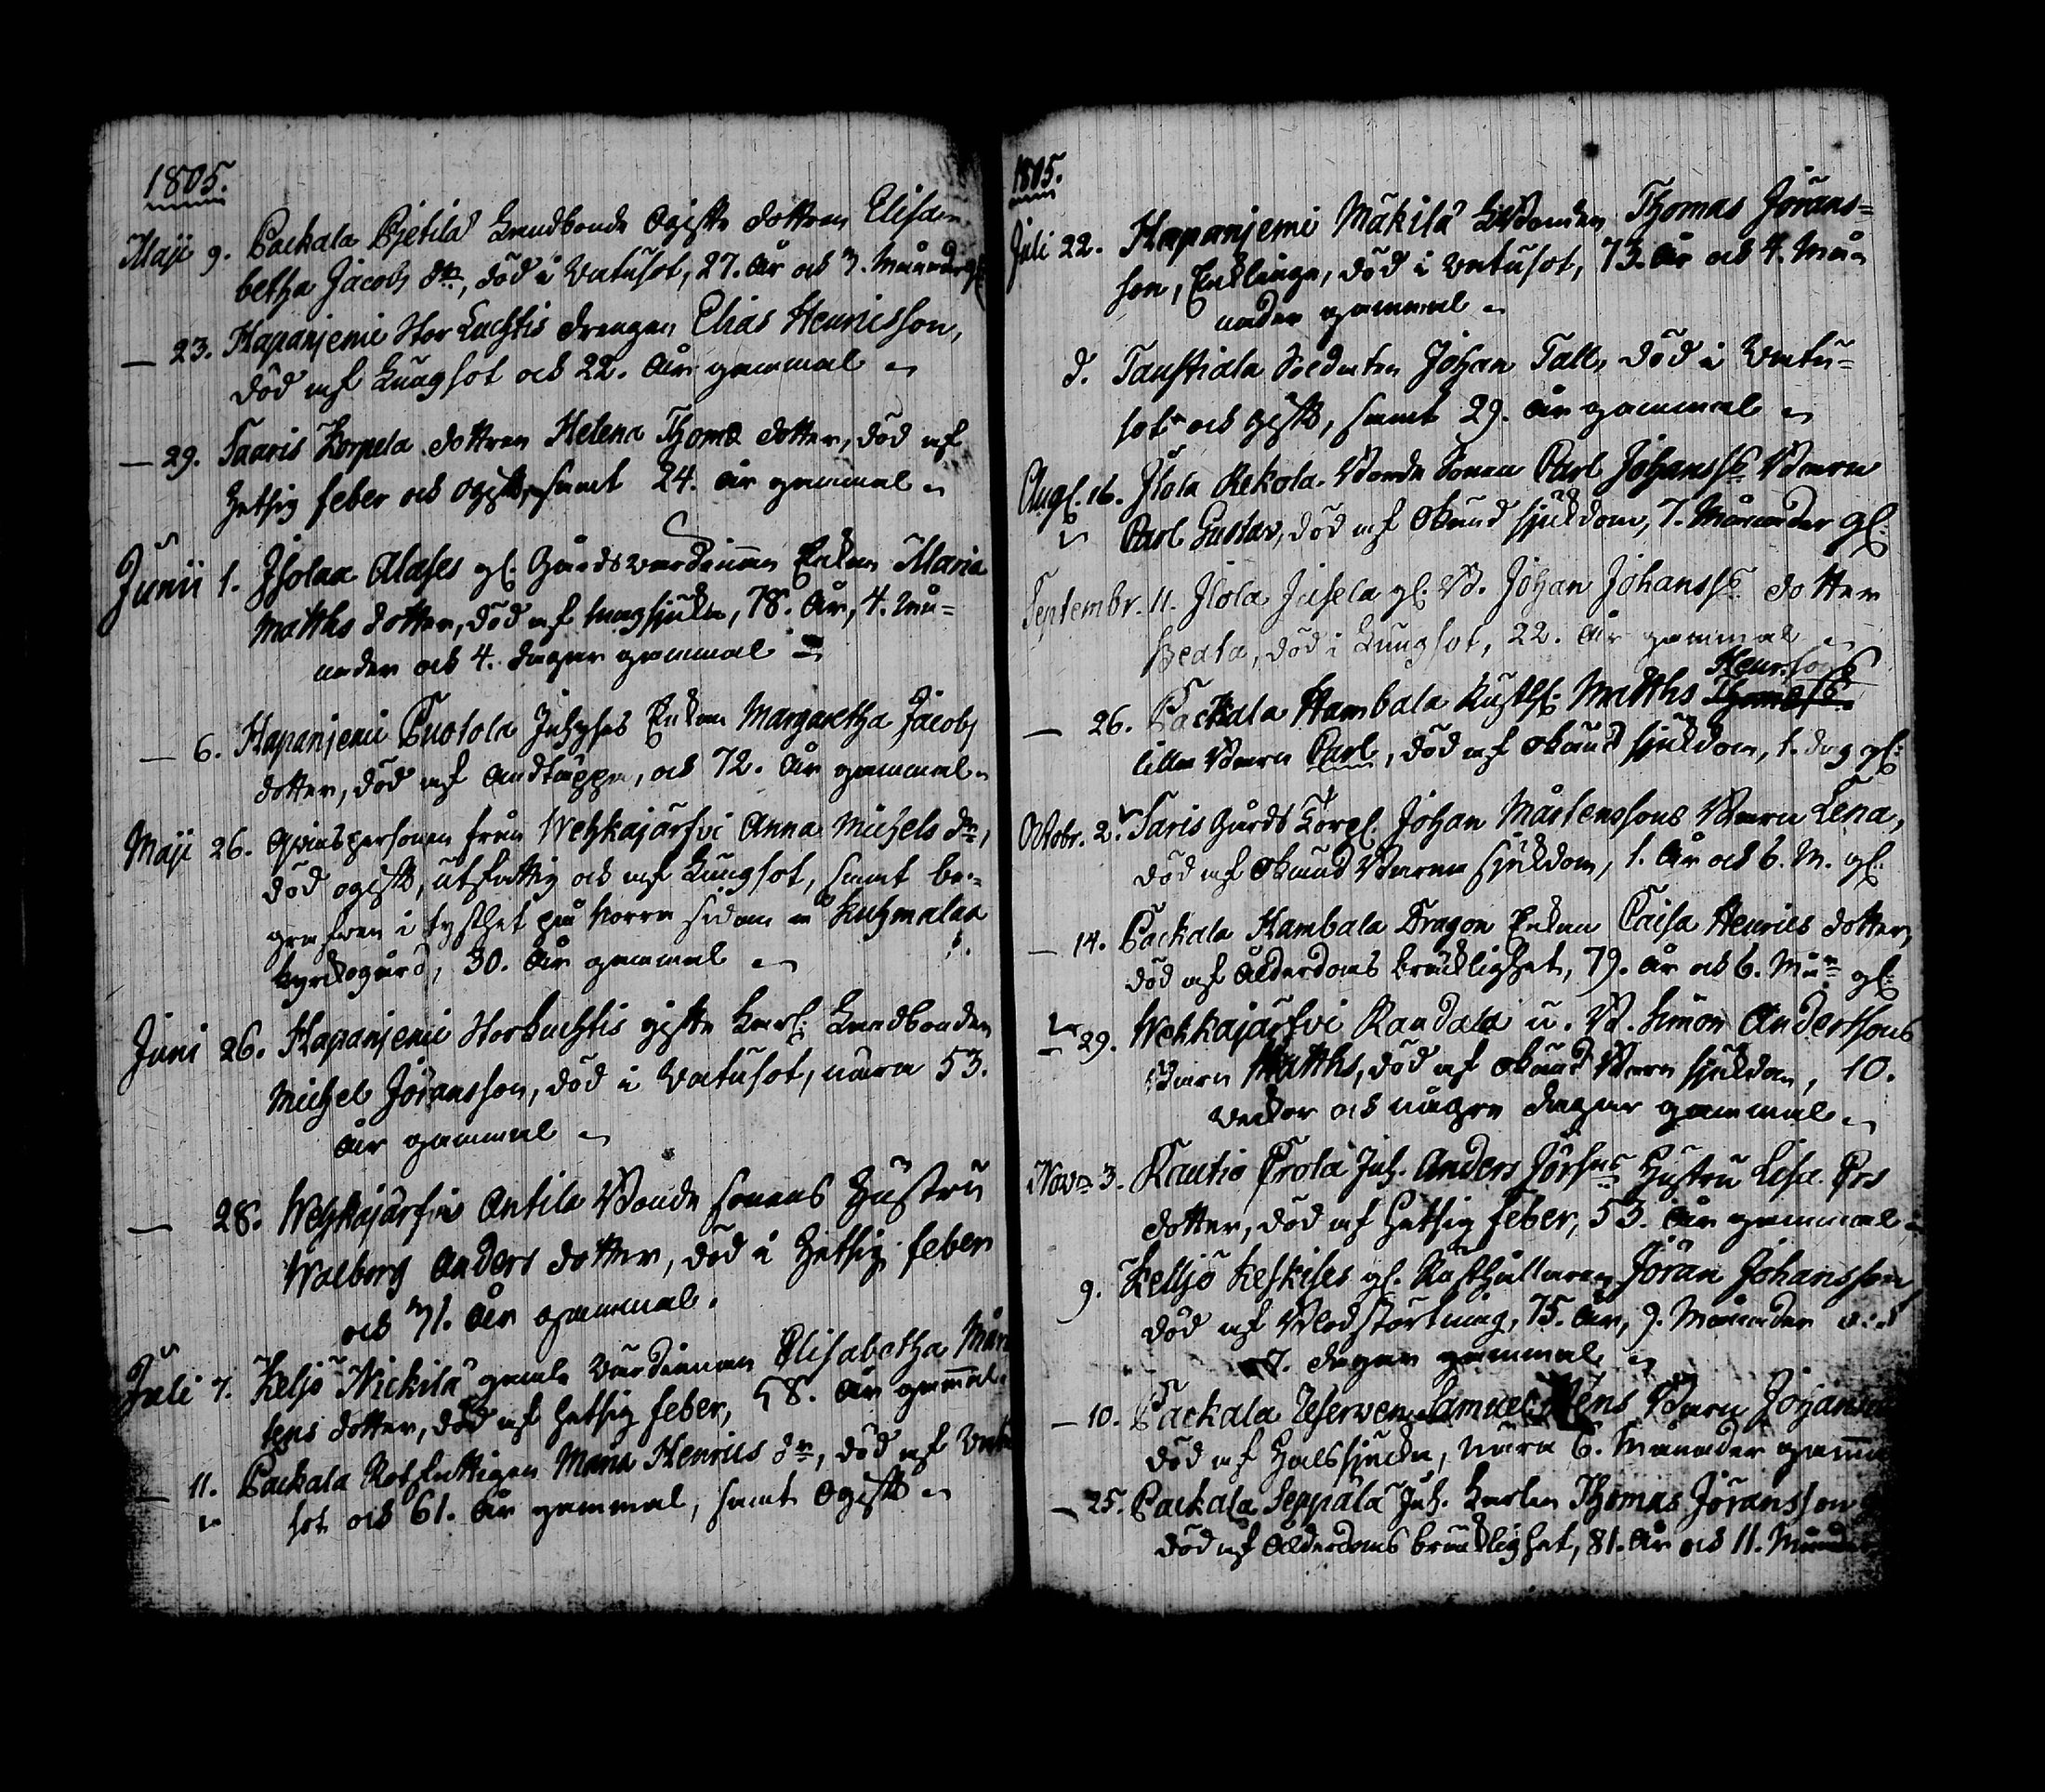 1805.
Maji 9. Packala Pjetilä Landbonde Ogifte dottren Elisa-
betha Jacobs dr, död i Vatusot, 27. år och 7. månader gl.
— 23. Hapanjemi Stor Luchtis drengen Elias Henricsson,
död af Lungsot och 22. år gammal
— 29. Saaris Korpela dottren Helena Thomæ dotter, död af
Hetsig feber och ogift, samt 24. år gammal
Junii 1. Isolaa Alases gl. Gårdsvärdinnan Enkan Maria
Matths dotter, död af magsjuka, 78. år, 4. må-
nader och 4. dagar gammal
— 6. Hapanjemi Tuotola Inhyses Enkan Margaretha Jacobs
dotter, död af andtäppa, och 72. år gammal
Maji 26. Qvinspersonen från Wehkajärfvi Anna Michels dr,
död ogift, utfattig och af Lungsot, samt be-
grafven i tysthet på Norra sidan a Kuhmalax
kyrkogård, 30. år gammal
Juni 26. Hapanjemi Storluchtis gifte Karl. Landbonden
Michel Jöransson, död i Vatusot, nära 53.
år gammal
— 28. Wehkajärfvi Antila Bonde sonens Hustru
Walborg Anders dotter, död i Hetsig feber
och 71. år gammal.
Juli 7. Keljo Nickilä gamla värdinnan Elisabetha Mår
tens dotter, död af hetsig feber, 58. år gammal.
— 11. Packala Rotfattigen Maria Henrics dr, död af Vatu
sot och 61. år gammal, samt Ogift
1805.
Juli 22. Hapanjemi Mäkilä Bonden Thomas Jörans-
son, Enklinge, död i vatusot, 73. år och 4. må-
nader gammal
d. Taustiala Soldaten Johan Tall, död i Vatu-
sot och gift, samt 29. år gammal
Aug. 16. Ilola Rekola Bonde Sonen Carl Johanss. Barn
Carl Gustav, död af Okänd sjukdom, 7. Månader gl.
Septembr. 11. Ilola Jusela gl. B. Johan Johanss. dotter
Beata, död i Lungsot, 22. år gammal
Henrsons
— 26. Packala Hambala Rusth. Matths Thomæss.
lilla Barn Carl, död af okänd sjukdom, 1. dag gl.
Octobr. 2. Saris Gårds Torp. Johan Mårtenssons Barn Lena,
död af okänd Barna sjukdom, 1. år och 6. M. gl.
— 14. Packala Hambala Dragon Enkan Caisa Henrics dotter,
död af ålderdoms bräcklighet, 79. år och 6. Mån. gl.
— 29. Wehkajärfvi Randala u. B. Simon Anderssons
Barn Matths, död af okänd Barn sjukdom, 10.
veckor och några dagar gammal
Nov. 3. Rautio Prola Inh. Anders Jörss. Hustru Lisa Ers
dotter, död af Hetsig feber, 53. år gammal
9. Keljo Keskises gl. Rusthållaren Jöran Johansson,
död af Blodstörtning, 75. år, 9. Månader och
7. dagar gammal
— 10. Packala Reserven Samuel Béns Barn Johanna
död af Halssjuka, nära 6. Månader gamma
— 25. Packala Seppälä Inh. Karlen Thomas Jöransson
död af ålderdoms bräcklighet, 81. år och 11. Månader